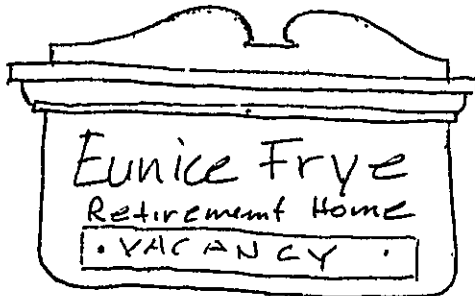 Eunice Frye
Retirement Home
• VACANCY •